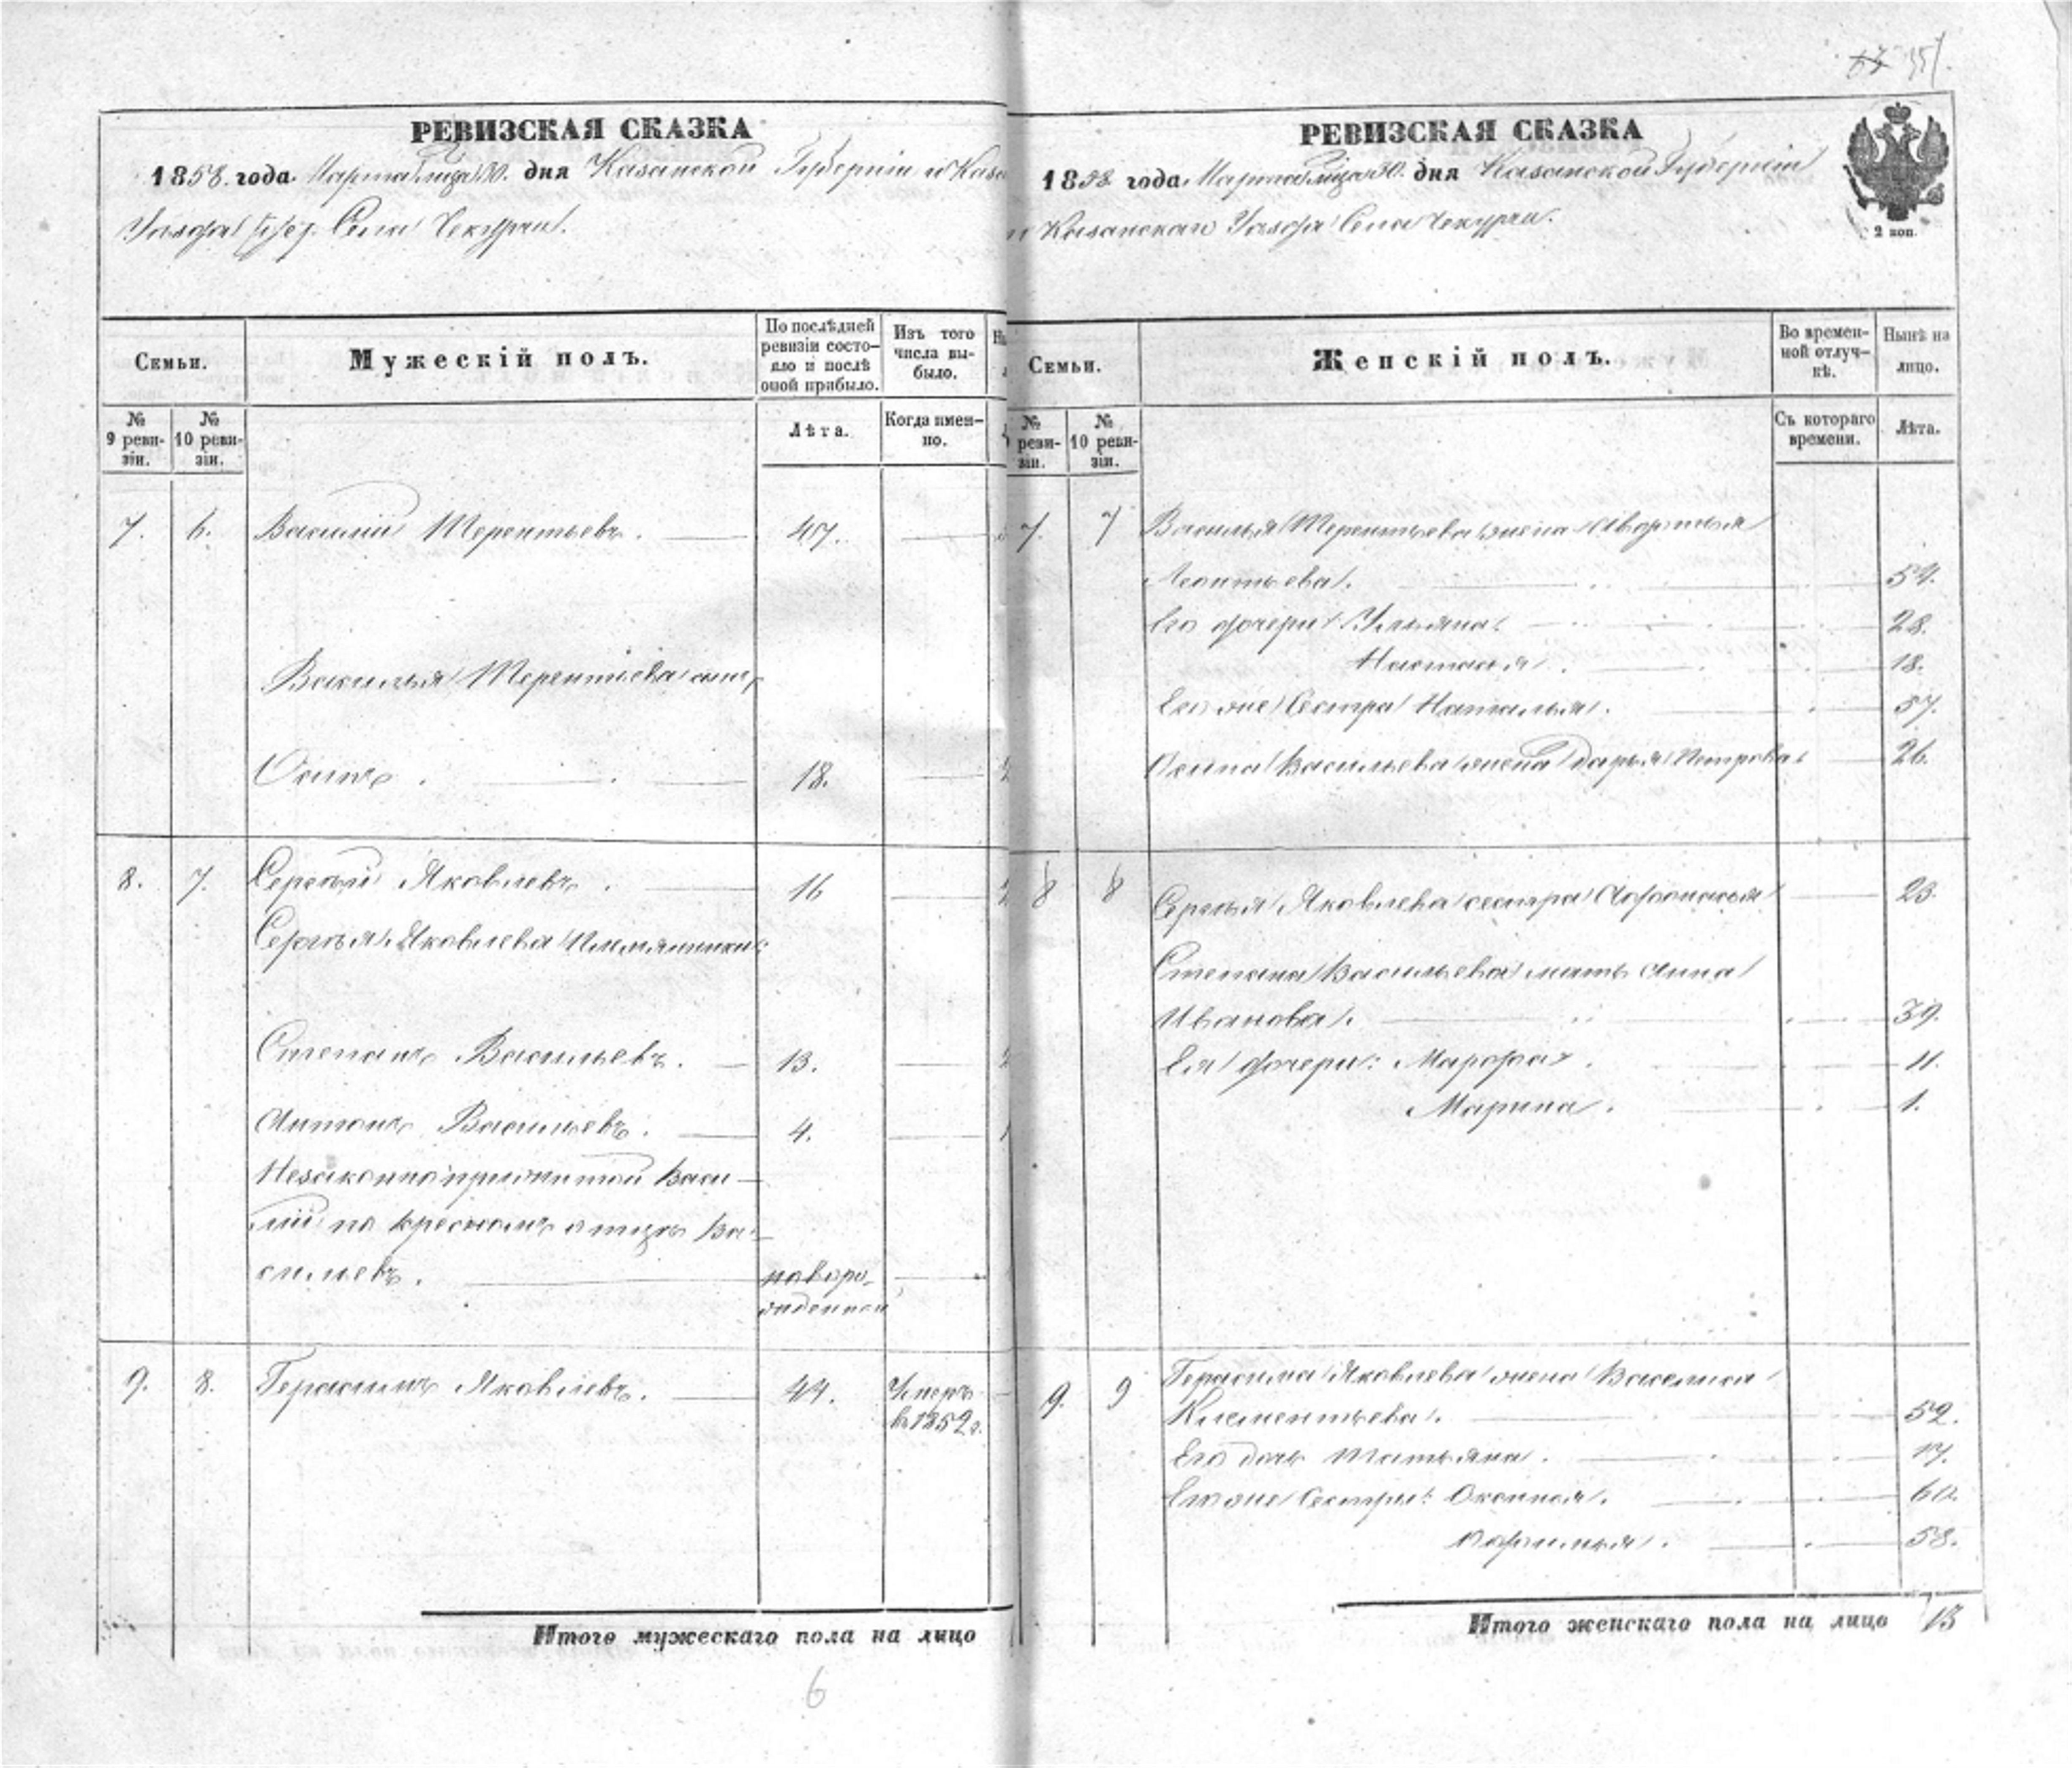 РЕВИЗСКАЯ СКАЗКА
1858. года Марта м-ца 30. дня Казанской Губерніи и Каза
Уѣзда Села Чекурчи.
Семьи.
Мужескій полъ.
По послѣдней ревизіи состо-
яло и послѣ
оной прибыло.
Изъ того
числа вы-
было.
№
9 реви-
зіи.
№
10 реви-
зіи.
Лѣта.
Когда имен-
но.
7. 6. Василій Терентьевъ. 47.
Василья Терентіева сынъ
Осипъ. 18.
8. 7. Сергѣй Яковлевъ. 16
Сергѣя Яковлева племянники:
Степанъ Васильевъ. 13.
Антонъ Васильевъ. 4.
Незаконноприжитой Васи-
лій по крестномъ отцѣ Ва-
сильевъ. новоро-
жденной
9. 8. Герасимъ Яковлевъ. 44. Умеръ
въ 1852 г.
Итого мужескаго пола на лицо
6
35
РЕВИЗСКАЯ СКАЗКА
1858 года Марта м-ца 30. дня Казанской Губерніи
и Казанскаго Уѣзда Села Чекурчи.
2 коп.
Семьи.
Женскій полъ.
Во времен-
ной отлуч-
кѣ.
Нынѣ на
лицо.
№
реви-
зіи.
№
10 реви-
зіи.
Съ котораго
времени.
Лѣта.
7. 7 Василья Терентьева жена Авдотья
Леонтьева. 54.
Его дочери: Ульяна. 28.
Настасья. 18.
Его же Сестра Наталья. 57.
Осипа Васильева жена Дарья Петрова 26.
8 8 Сергѣя Яковлева сестра Афонасья 23.
Степана Васильева мать Анна
Иванова. 39.
Ея дочери: Марфа. 11.
Марина. 1.
9. 9 Герасима Яковлева жена Василиса
Клементьева. 52.
Его дочь Татьяна. 17.
Его же Сестры: Оксинья. 60.
Офимья. 58.
Итого женскаго пола на лицо 13